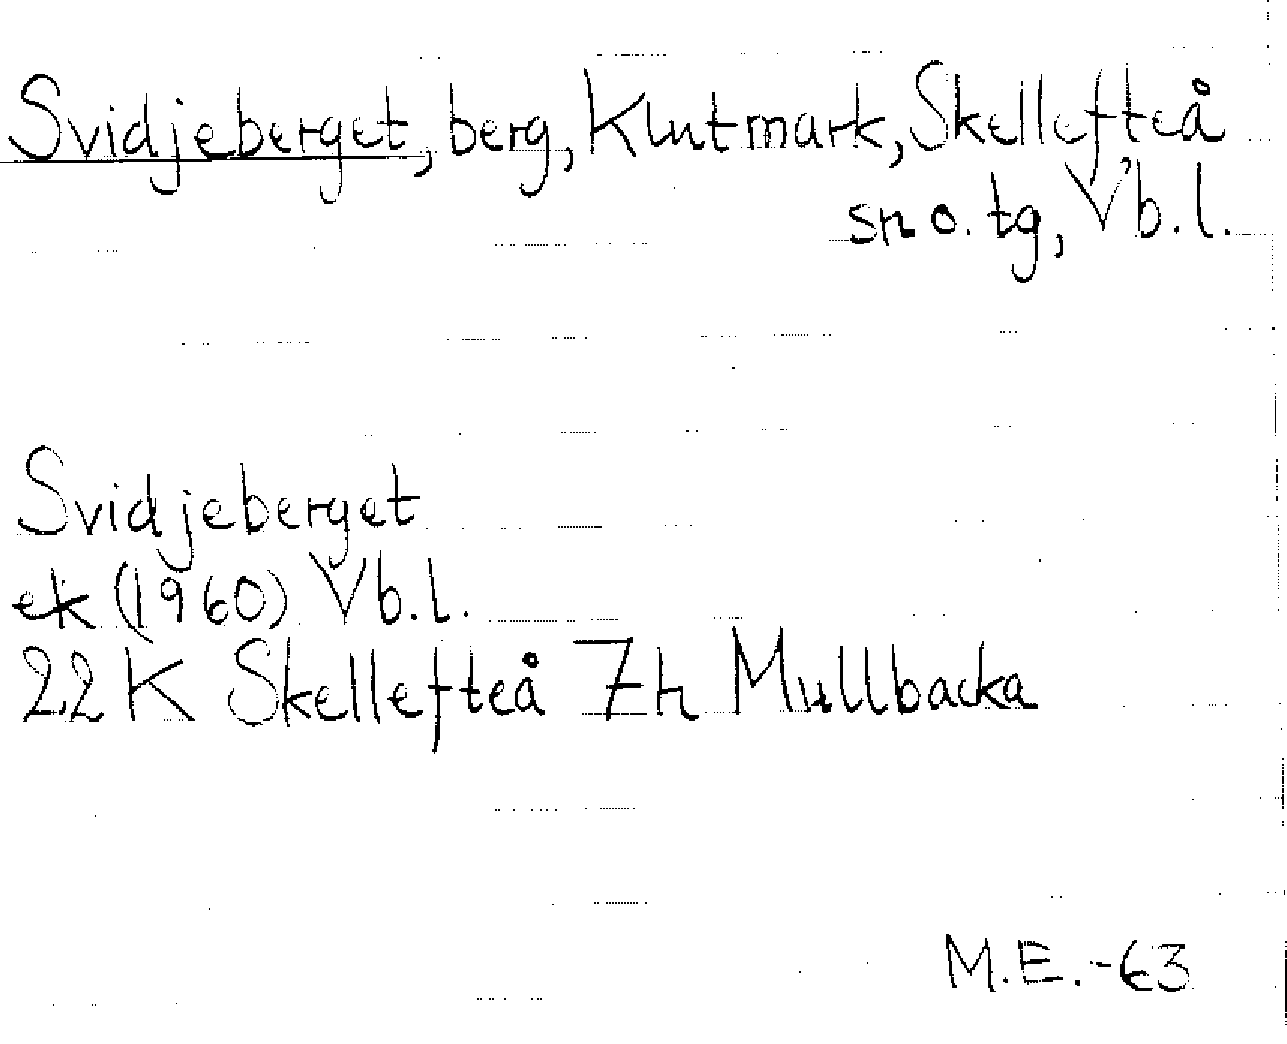 Svidjeberget, berg, Klutmark, Skellefteå
sn o. tg, Vb.l.
Svidjeberget
ek (1960) Vb.l.
22K Skellefteå 7h Mullbacka
M.E.-63